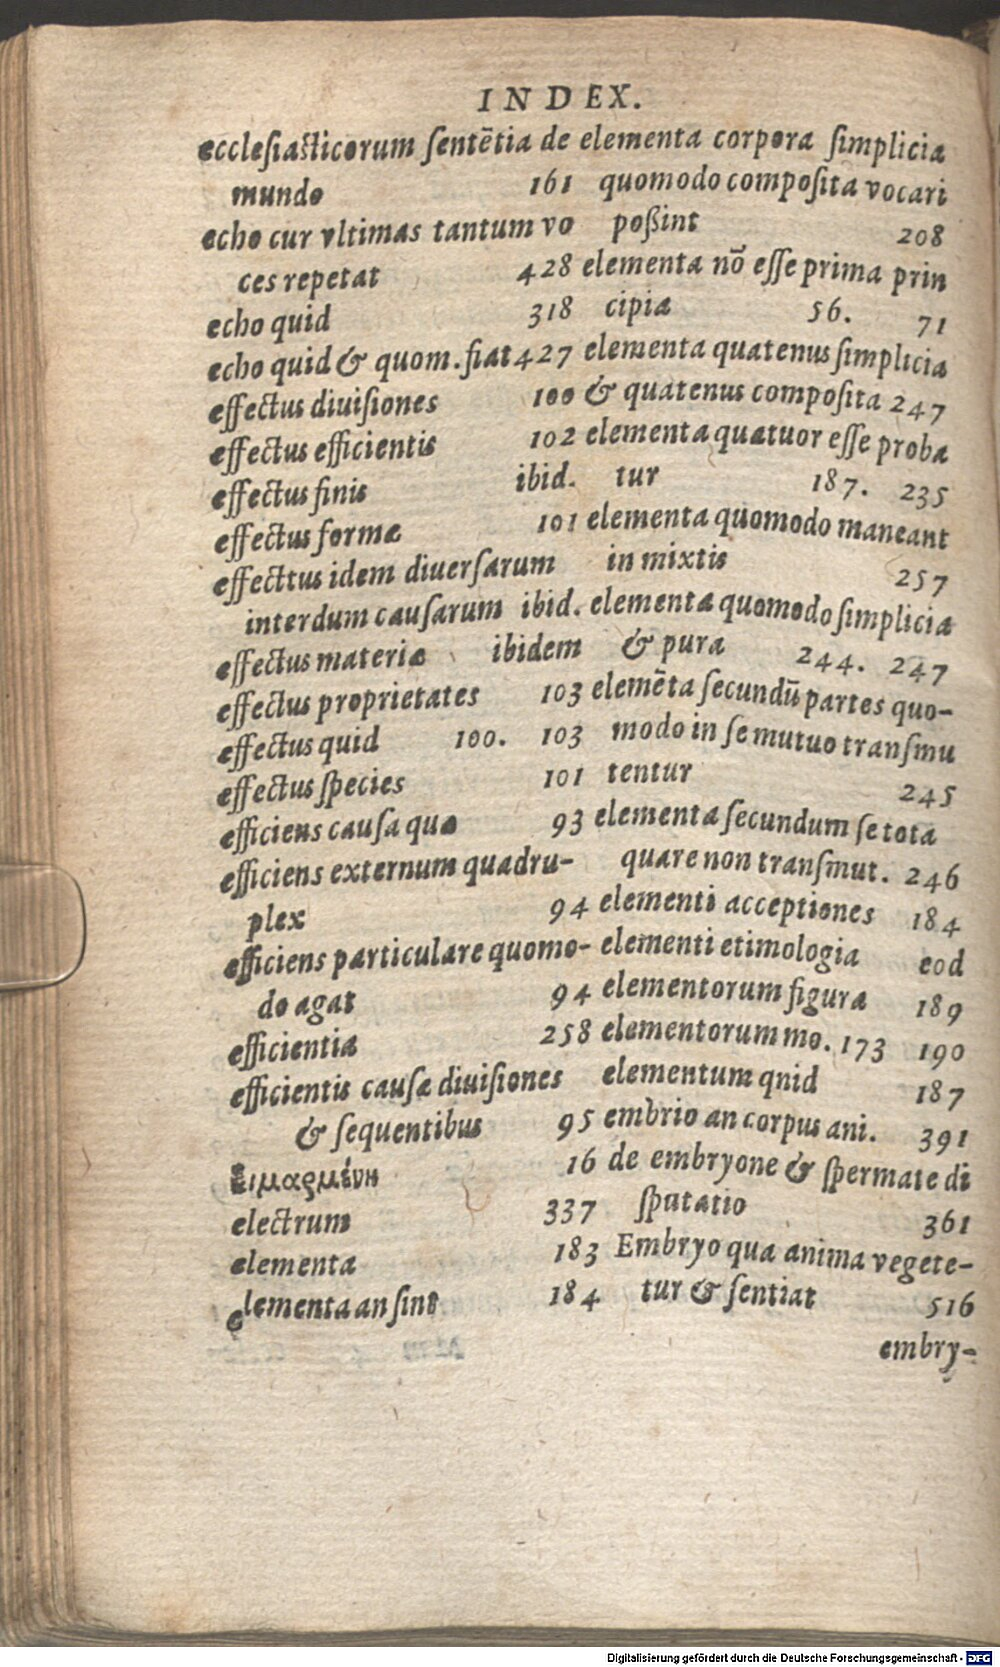 INDEX.
ecclesiasticorum sentētia de
mundo 161
echo cur vltimas tantum vo
ces repetat 428
echo quid 318
echo quid & quom. fiat 427
effectus diuisiones 100
effectus efficientis 102
effectus finis ibid.
effectus formæ 101
effecttus idem diuersarum
interdum causarum ibid.
effectus materiæ ibidem
effectus proprietates 103
effectus quid 100. 103
effectus species 101
efficiens causa quæ 93
efficiens externum quadru-
plex 94
efficiens particulare quomo-
do agat 94
efficientia 258
efficientis causæ diuisiones
& sequentibus 95
εἱμαρμένη 16
electrum 337
elementa 183
elementa an sint 184
elementa corpora simplicia
quomodo composita vocari
poßint 208
elementa nō esse prima prin
cipia 56. 71
elementa quatenus simplicia
& quatenus composita 247
elementa quatuor esse proba
tur 187. 235
elementa quomodo maneant
in mixtis 257
elementa quomodo simplicia
& pura 244. 247
elemēta secundū partes quo-
modo in se mutuo transmu
tentur 245
elementa secundum se tota
quare non transmut. 246
elementi acceptiones 184
elementi etimologia eod
elementorum figura 189
elementorum mo. 173 190
elementum qnid 187
embrio an corpus ani. 391
de embryone & spermate di
sputatio 361
Embryo qua anima vegete-
tur & sentiat 516
embry-
Digitalisierung gefördert durch die Deutsche Forschungsgemeinschaft - DFG